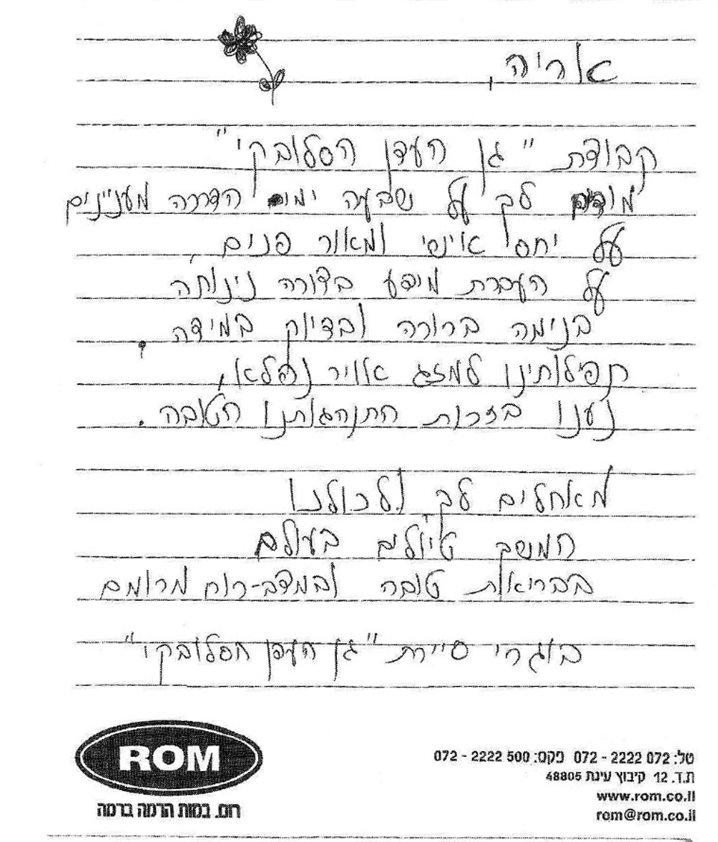 אריה,
קבוצת "גן העדן הסלובקי"
מודים לך על שבעה ימי הדרכה מעניינים
על יחס אנושי ומאור פנים,
על העברת מידע בצורה נינוחה
בנימה ברורה ובדיוק במידה.
תפילותינו למזג אוויר נפלא,
נענו בזכות התנהגותנו הטובה.
מאחלים לך ולכולנו
המשך טיולים בעולם
בבריאות טובה ובמצב-רוח מרומם
בוגרי סיירת "גן העדן הסלובקי"
ROM
רום. במות הרמה ברמה
טל: 072 - 2222 072 פקס: 500 2222 - 072
ת.ד. 12 קיבוץ עינת 48805
www.rom.co.il
rom@rom.co.il